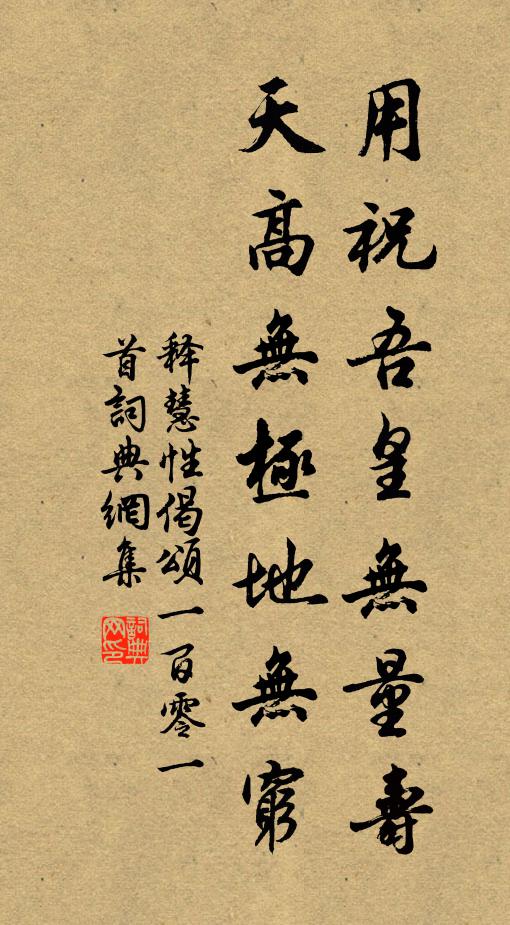 用祝吾皇無量壽
天高無極地無窮
釋慧性偈頌一百零一
首詞典網集
詞典網印